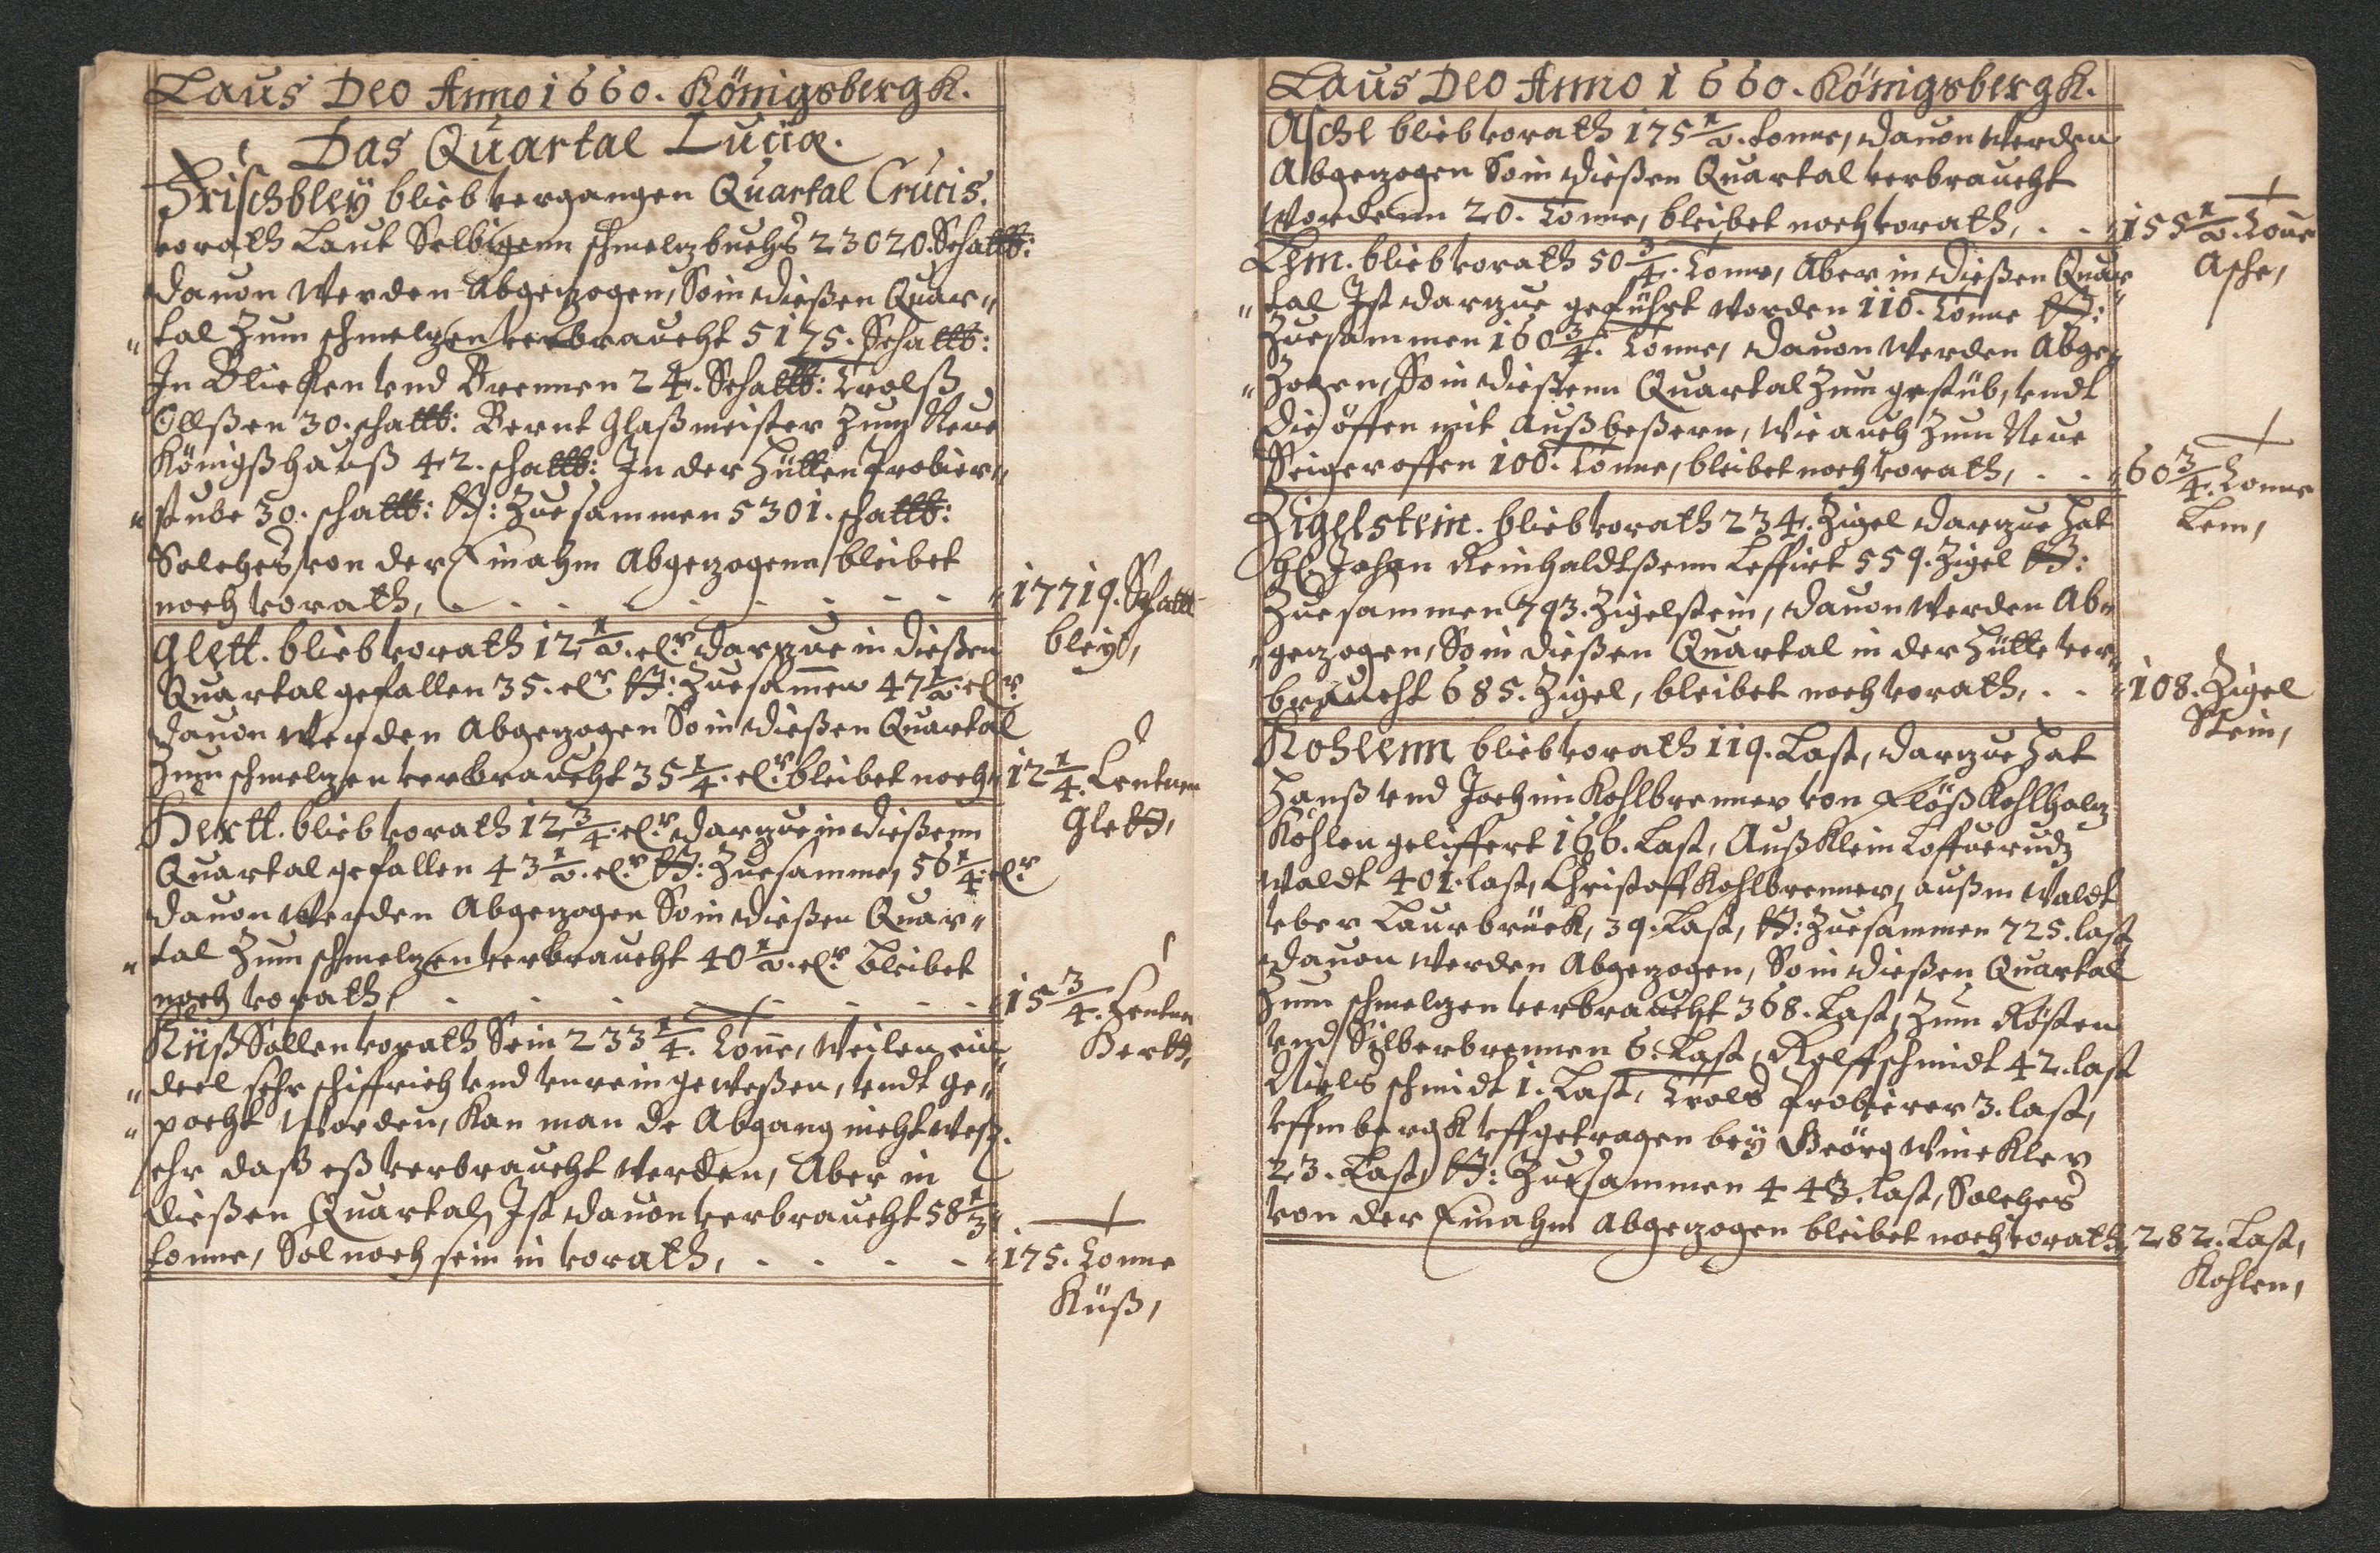 Laus Deo Anno 1660. Königsbergk.
Das Quartal Luciæ.
Frischbley blieb vergangen Quartal Crucis.
vorath Laut Selbigenn schmelzbuchs 23020. Schaltt:
dauon Werden Abgezogen, So in diesßen Quar„
„tal Zum schmelzen verbraucht 5175. Schaltt:
In Blicken vnd Brennen 24. Schaltt: Trolß
Ollßen 30. schaltt: Bernt Glaßmeister Zum Neue
Königßhauß 42. schaltt: In der Hütten Probier„
„stube 30. schaltt: Zuesammen 5301. schaltt:
Solches von der Einahm Abgezogenn bleibet
noch vorath, . . . . . . . . „17719. Schaltt
bleyt,
Glett. blieb vorath 12 1/2. Cr. darzue in diesßen
Quartal gefallen 35. Cr. Zuesamen 47 1/2. Cr.
dauon Werden Abgezogen So in diesßen Quartal
Zum schmelzen verbraucht 35 1/4. Cr. bleibet noch „12 1/4. Centner
Glett,
Hertt. blieb vorath 12 3/4. Cr. darzue in diesßenn
Quartal gefallen 43 1/2. Cr. Zuesamme, 56 1/4. Cr.
dauon Werden Abgezogen So in diesßen Quar„
„tal Zum schmelzen verbraucht 40 1/2. Cr. bleibet
noch vorath, . . . . . . . „15 3/4. Zentner
Hertt,
Küß Sollen vorath Sein 233 1/4. Tone, Weilen ein
„deel sehr schiffrich vnd vnrein geweßen, vndt ge„
„pocht Worden, Kan man de Abgang nicht weß.
ehr daß eß verbraucht Werden, Aber in
diesßen Quartal, Ist dauon verbraucht 58 1/3
tonne, Sol noch sein in vorath, . . . . „175. Tonne
Küß,
Laus Deo Anno 1660. Königsbergk.
Asche blieb vorath 175 1/2. tonne, dauon Werden
Abgezogen So in diesßen Quartal verbraucht
Wordenn 20. Tonne, bleibet noch vorath, . . „155 1/2. Tone
Asche,
Lem. blieb vorath 50 3/4. Tonne, Aber in diesßen Quar
„tal Ist darzue geführt worden 110. Tonne
Zuesammen 160 3/4. Tonne, dauon Werden Abge„
„Zogen, So in diesßenn Quartal Zum gestüb, vndt
die öffen mit Außbeßern, Wie auch Zum Neue
Seigeroffen 100. Tonne, bleibet noch vorath, . . „60 3/4. Tonne
Lem,
Zigelstein. blieb vorath 234. Zigel darzue hat
Johan Reinhaldtßenn Leffirt 559. Zigel
Zuesammen 793. Zigelstein, dauon Werden Ab„
„gezogen, So in diesßen Quartal in der Hütte ver„
braucht 685. Zigel, bleibet noch vorath, . . „108. Zigel
Stein,
Kohlenn blieb vorath 119. Last, darzue hat
Hanß vnd Jochim Kohlbrenner von Flöß Kohlholz
Kohlen geliffert 166. Last, Auß Klein
Waldt 401. last, Christoff Kohlbrenner, außm Waldt
vber Laurbrück, 39. Last, Zuesammen 725. last
dauon Werden Abgezogen, So in diesßen Quartal
Zum schmelzen verbraucht 368. Last, Zum Rösten
vnd Silberbrennen 6. Last, Rolff schmidt 42. last
Niels schmidt 1. Last, Trols Probierer 3. last,
vffm bergk vffgetragen bey Geörg Winckler
23. Last, Zuesammen 443. last, Solches
von der Einahm Abgezogen bleibet noch vorath, 282. Last,
Kohlen,